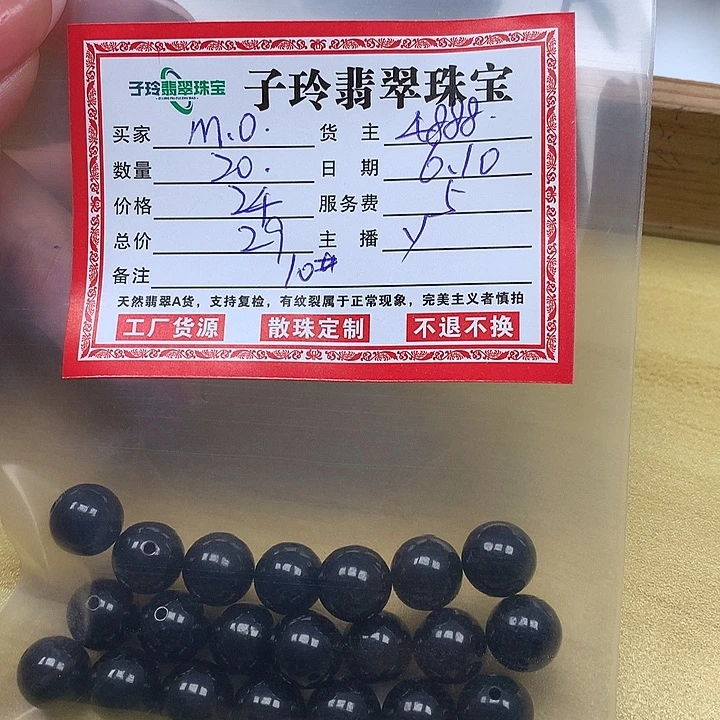 子玲翡翠珠宝 子玲翡翠珠宝
买家 M.O. 货主 4888.
数量 20. 日期 6.10
价格 24 服务费 5
总价 29 主播 Y
备注 10#
天然翡翠A货，支持复检，有纹裂属于正常现象，完美主义者慎拍
工厂货源 散珠定制 不退不换